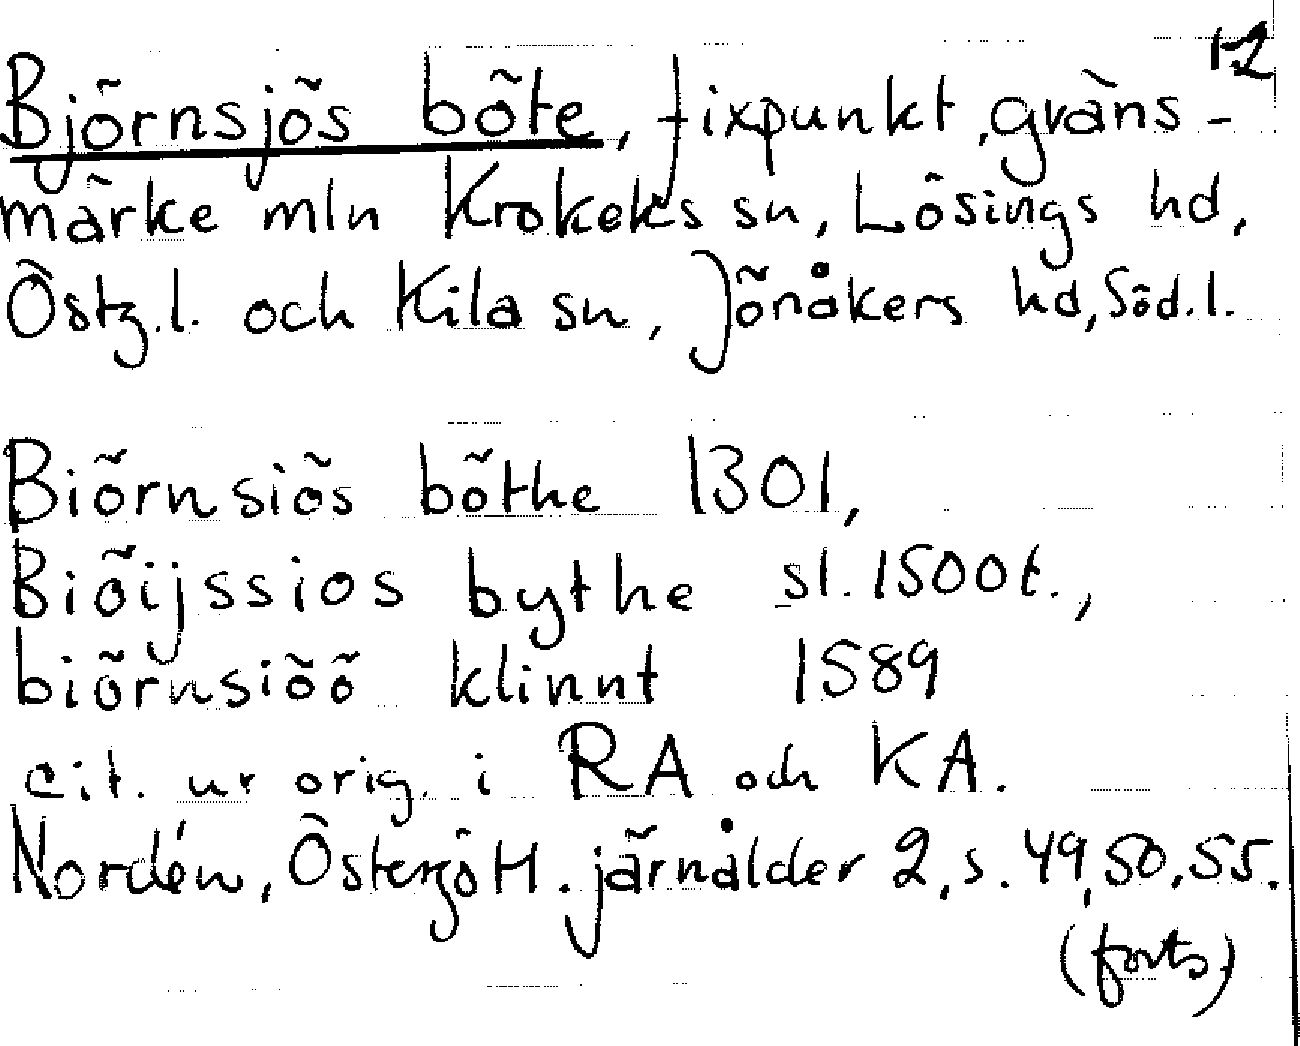 1-2
Björnsjös böte, fixpunkt, gräns-
märke mln Krokeks sn, Lösings hd,
Östg.l. och Kila sn, Jönåkers hd, Söd.l.
Biörnsiös böthe 1301,
Biöijssios bythe sl. 1500t.,
biörnsiöö klinnt 1589
cit. ur orig. i RA och KA.
Nordén, Östergötl. järnålder 2, s. 49, 50, 55.
(forts)